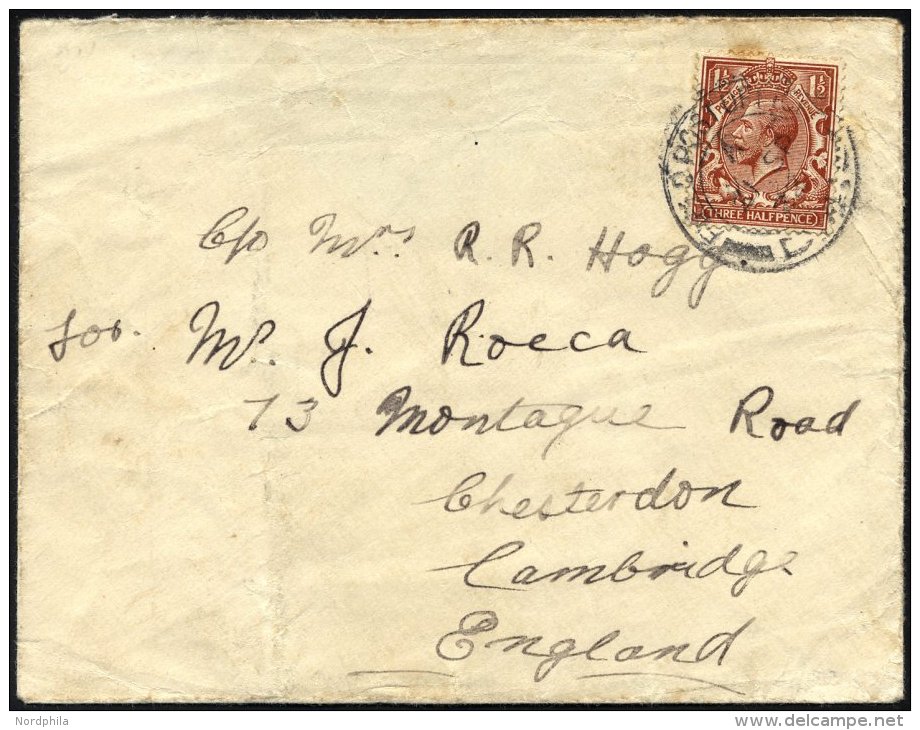 1½ 1½
POSTAGE REVENUE
THREE HALFPENCE
C/o Mrs R. R. Hogg
for. Mr. J. Rocca
73 Montague Road
Chesterdon
Cambridge
England
Nordphila
www.delcampe.net